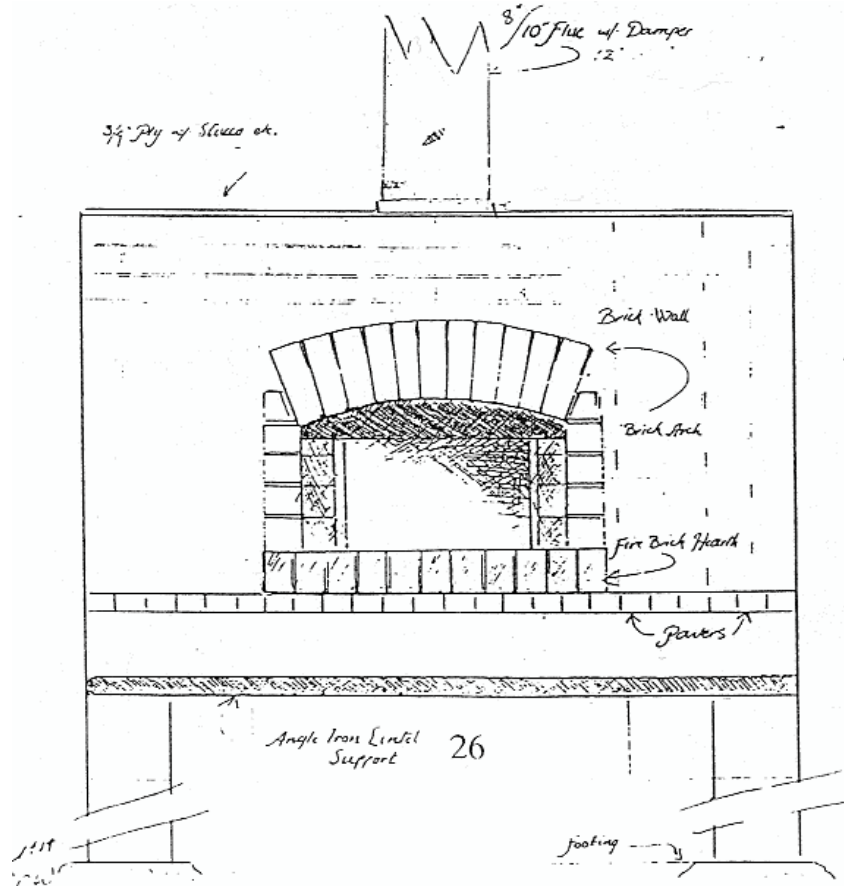 8"/10" Flue w/ Damper
12"
3/4" Ply w/ Stucco etc.
Brick Wall
Brick Arch
Fire Brick Hearth
Pavers
Angle Iron Lintel
Support
26
footing